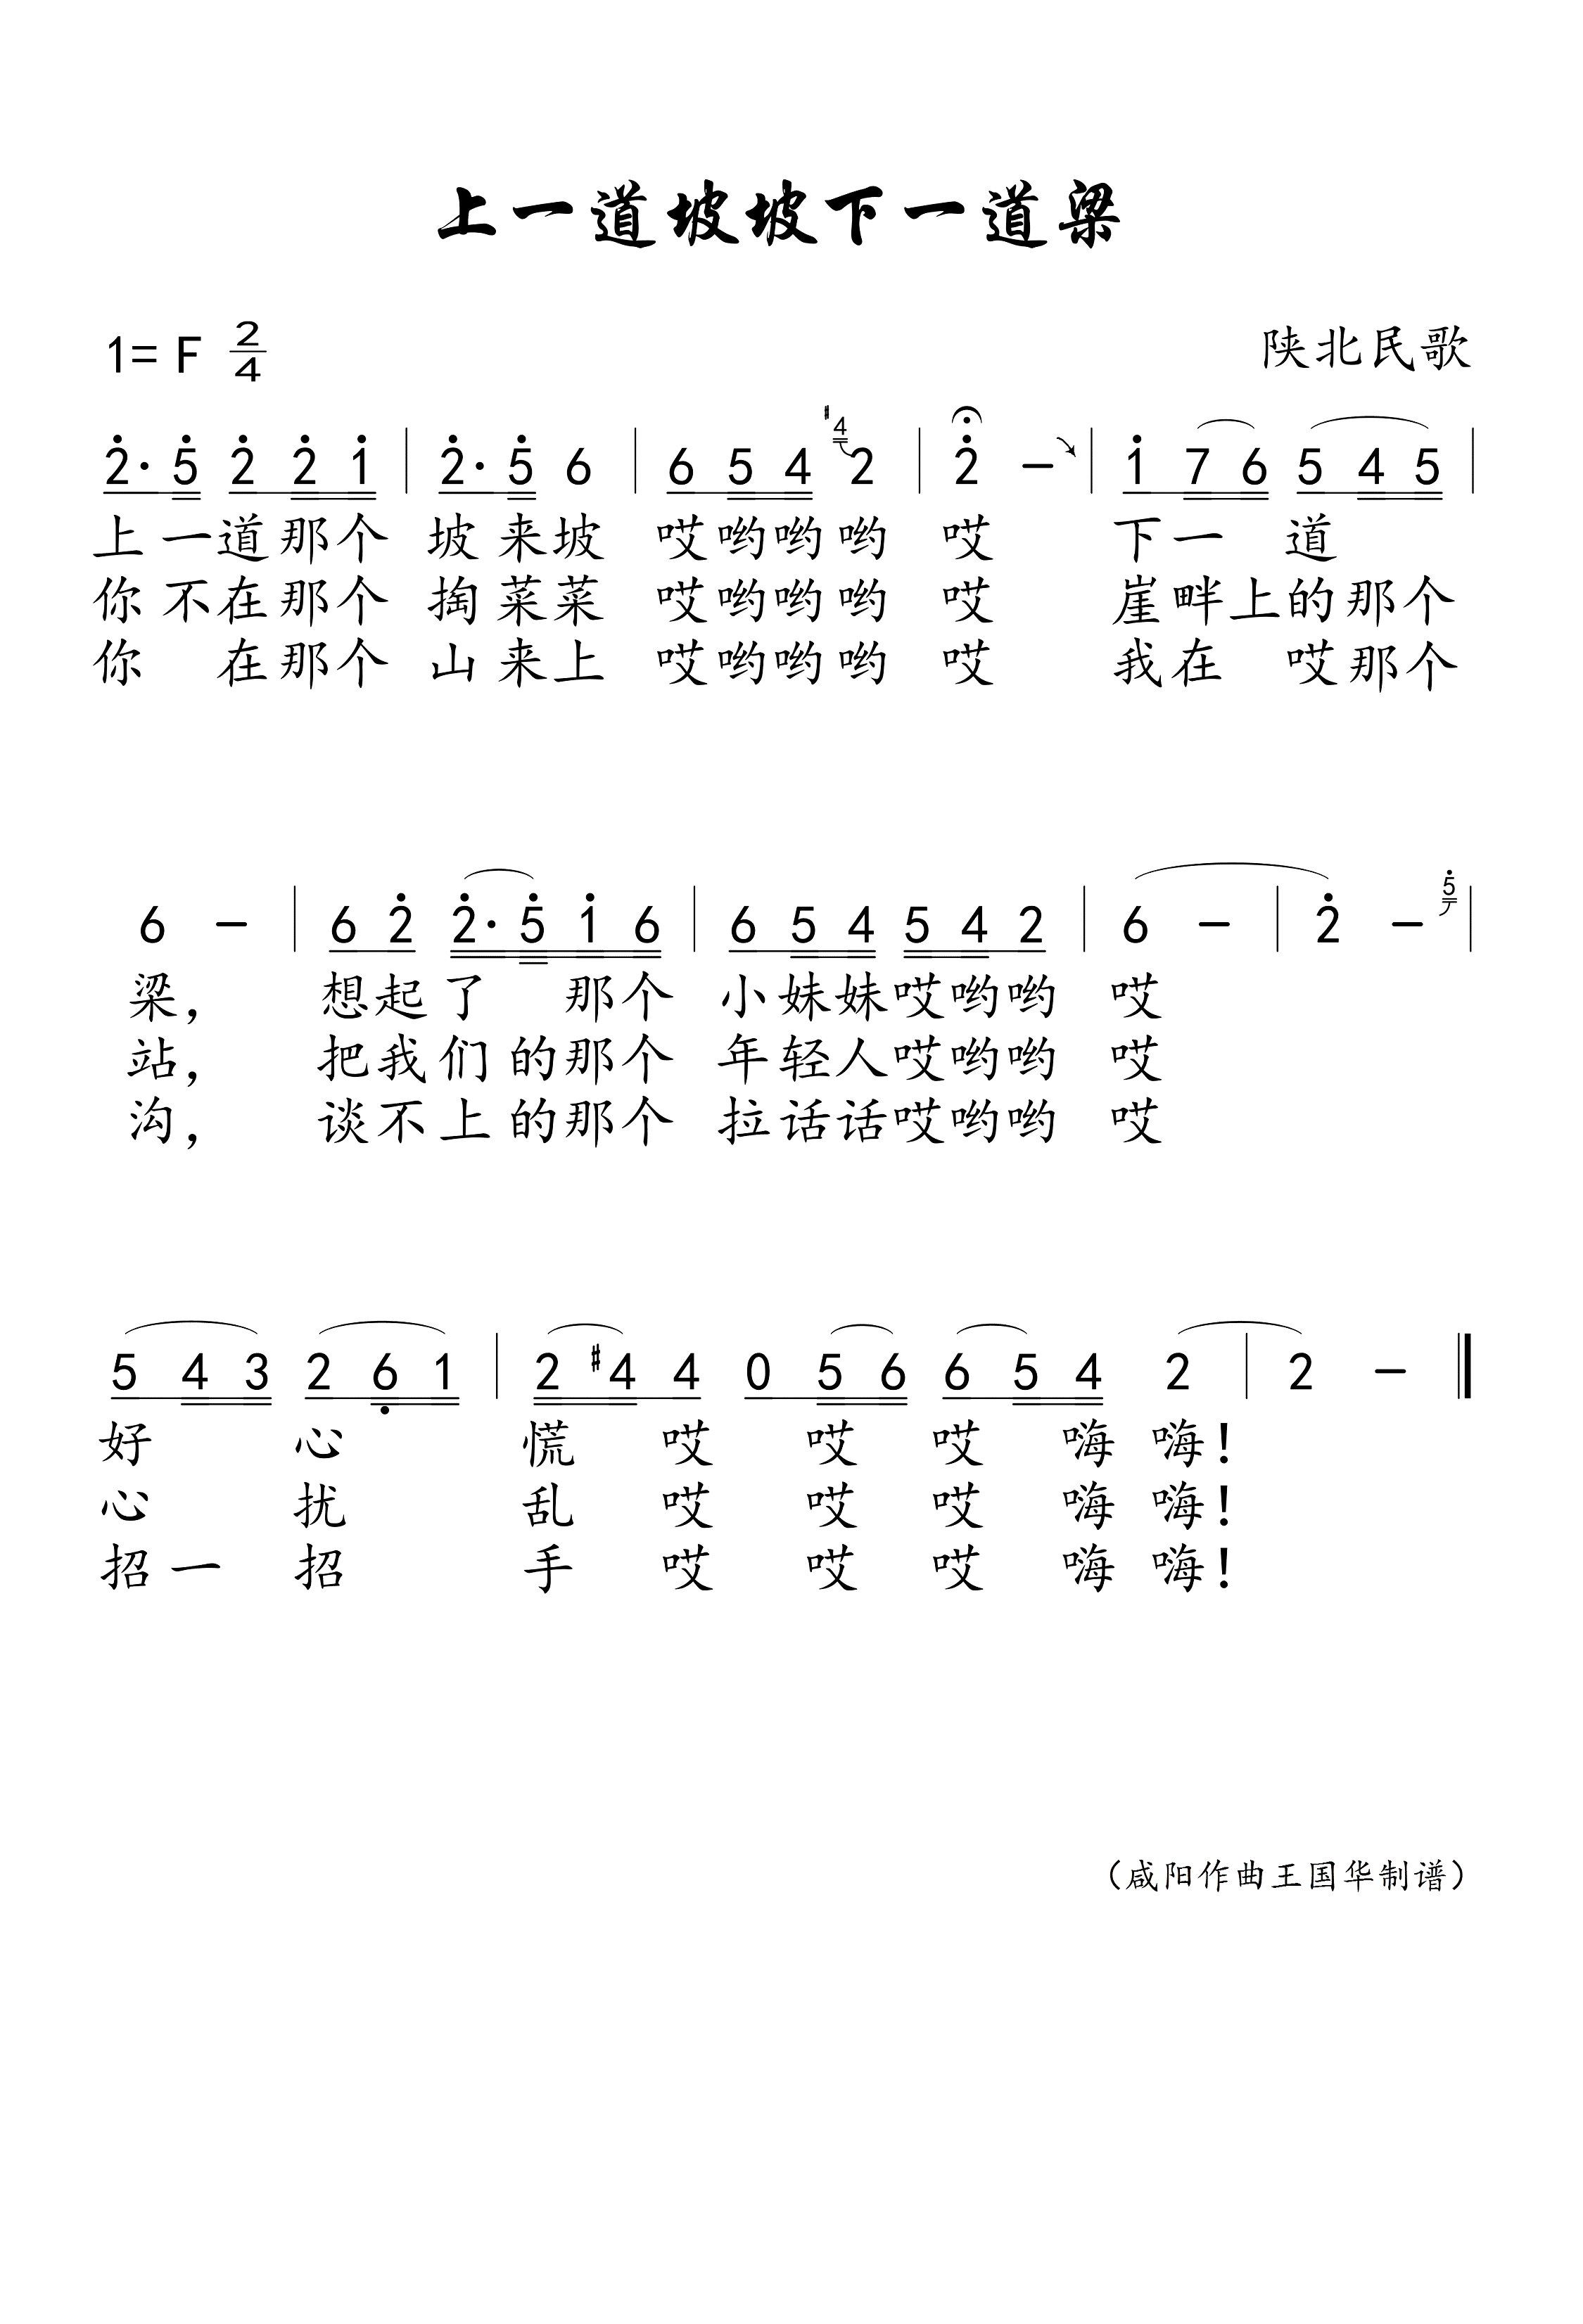 上一道坡坡下一道梁
1= F 2/4 陕北民歌
2̇· 5̇ 2̇ 2̇ 1̇ | 2̇· 5̇ 6 | 6 5 4 #4 2 | 2̇ – | 1̇ 7 6 5 4 5 |
上一道那个 坡来坡 哎哟哟哟 哎 下一 道
你不在那个 掏菜菜 哎哟哟哟 哎 崖畔上的那个
你 在那个 山来上 哎哟哟哟 哎 我在 哎那个
6 – | 6 2̇ 2̇· 5̇ 1̇ 6 | 6 5 4 5 4 2 | 6 – | 2̇ – 5̇ |
梁， 想起了 那个 小妹妹哎哟哟 哎
站， 把我们的那个 年轻人哎哟哟 哎
沟， 谈不上的那个 拉话话哎哟哟 哎
5 4 3 2 6̣ 1 | 2 #4 4 0 5 6 6 5 4 2 | 2 – ‖
好 心 慌 哎 哎 哎 嗨 嗨！
心 扰 乱 哎 哎 哎 嗨 嗨！
招一 招 手 哎 哎 哎 嗨 嗨！
（咸阳作曲王国华制谱）